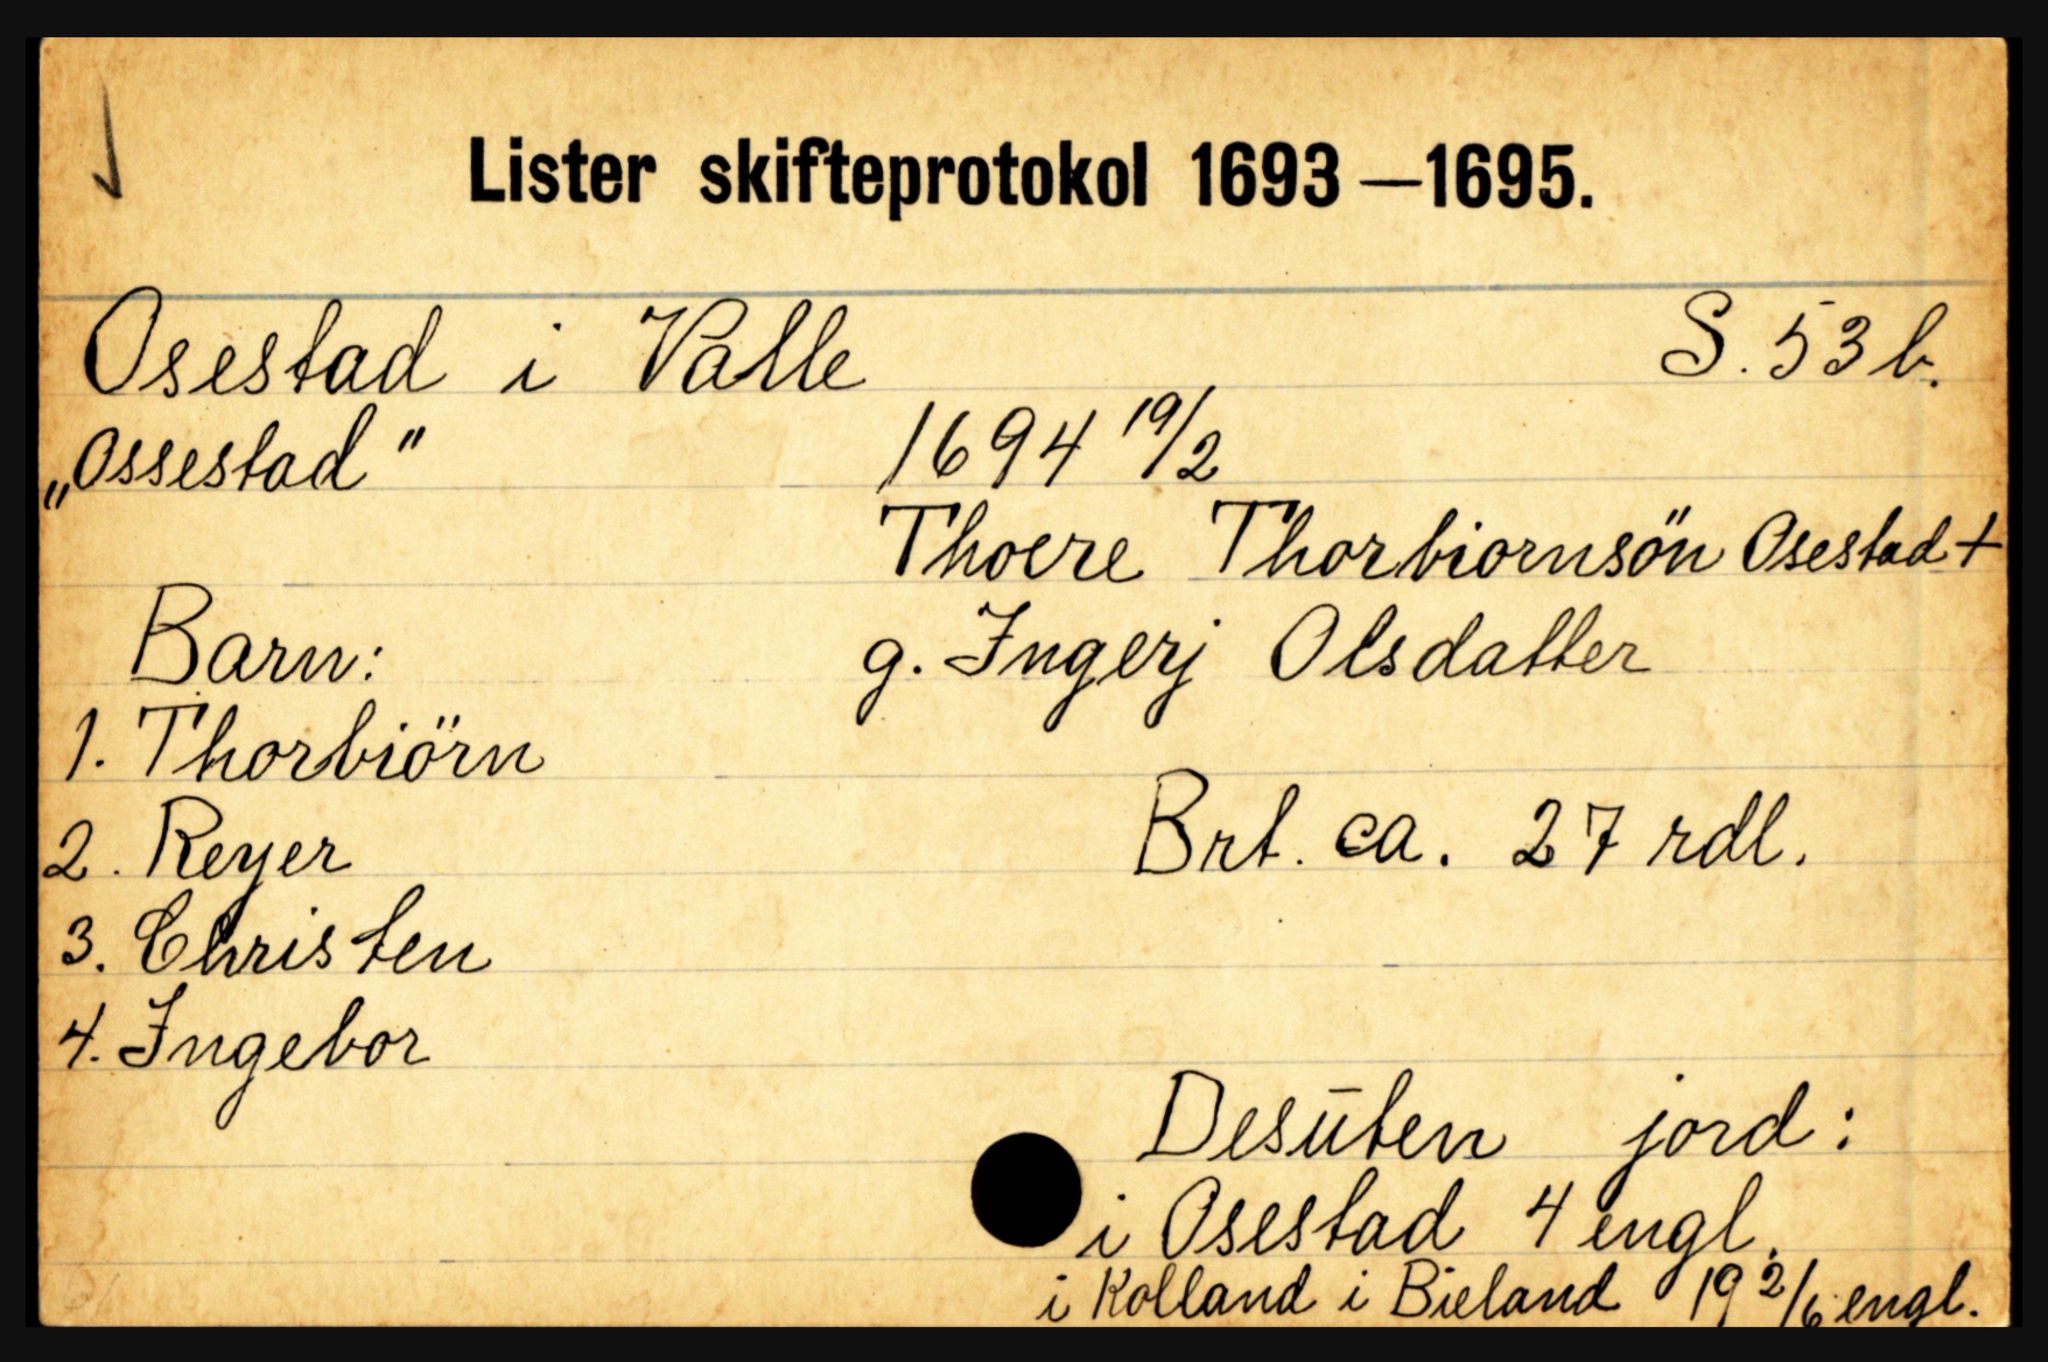 Lister skifteprotokol 1693—1695.
Osestad i Valle S. 53 b.
„Ossestad" 1694 19/2
Thoere Thorbiornsön Osestad +
Barn: g. Ingerj Olsdatter
1. Thorbiörn
2. Reyer Brt. ca. 27 rdl.
3. Christen
4. Ingebor
Desūten jord:
i Osestad 4 engl.
i Kolland i Bieland 19 2/6 engl.